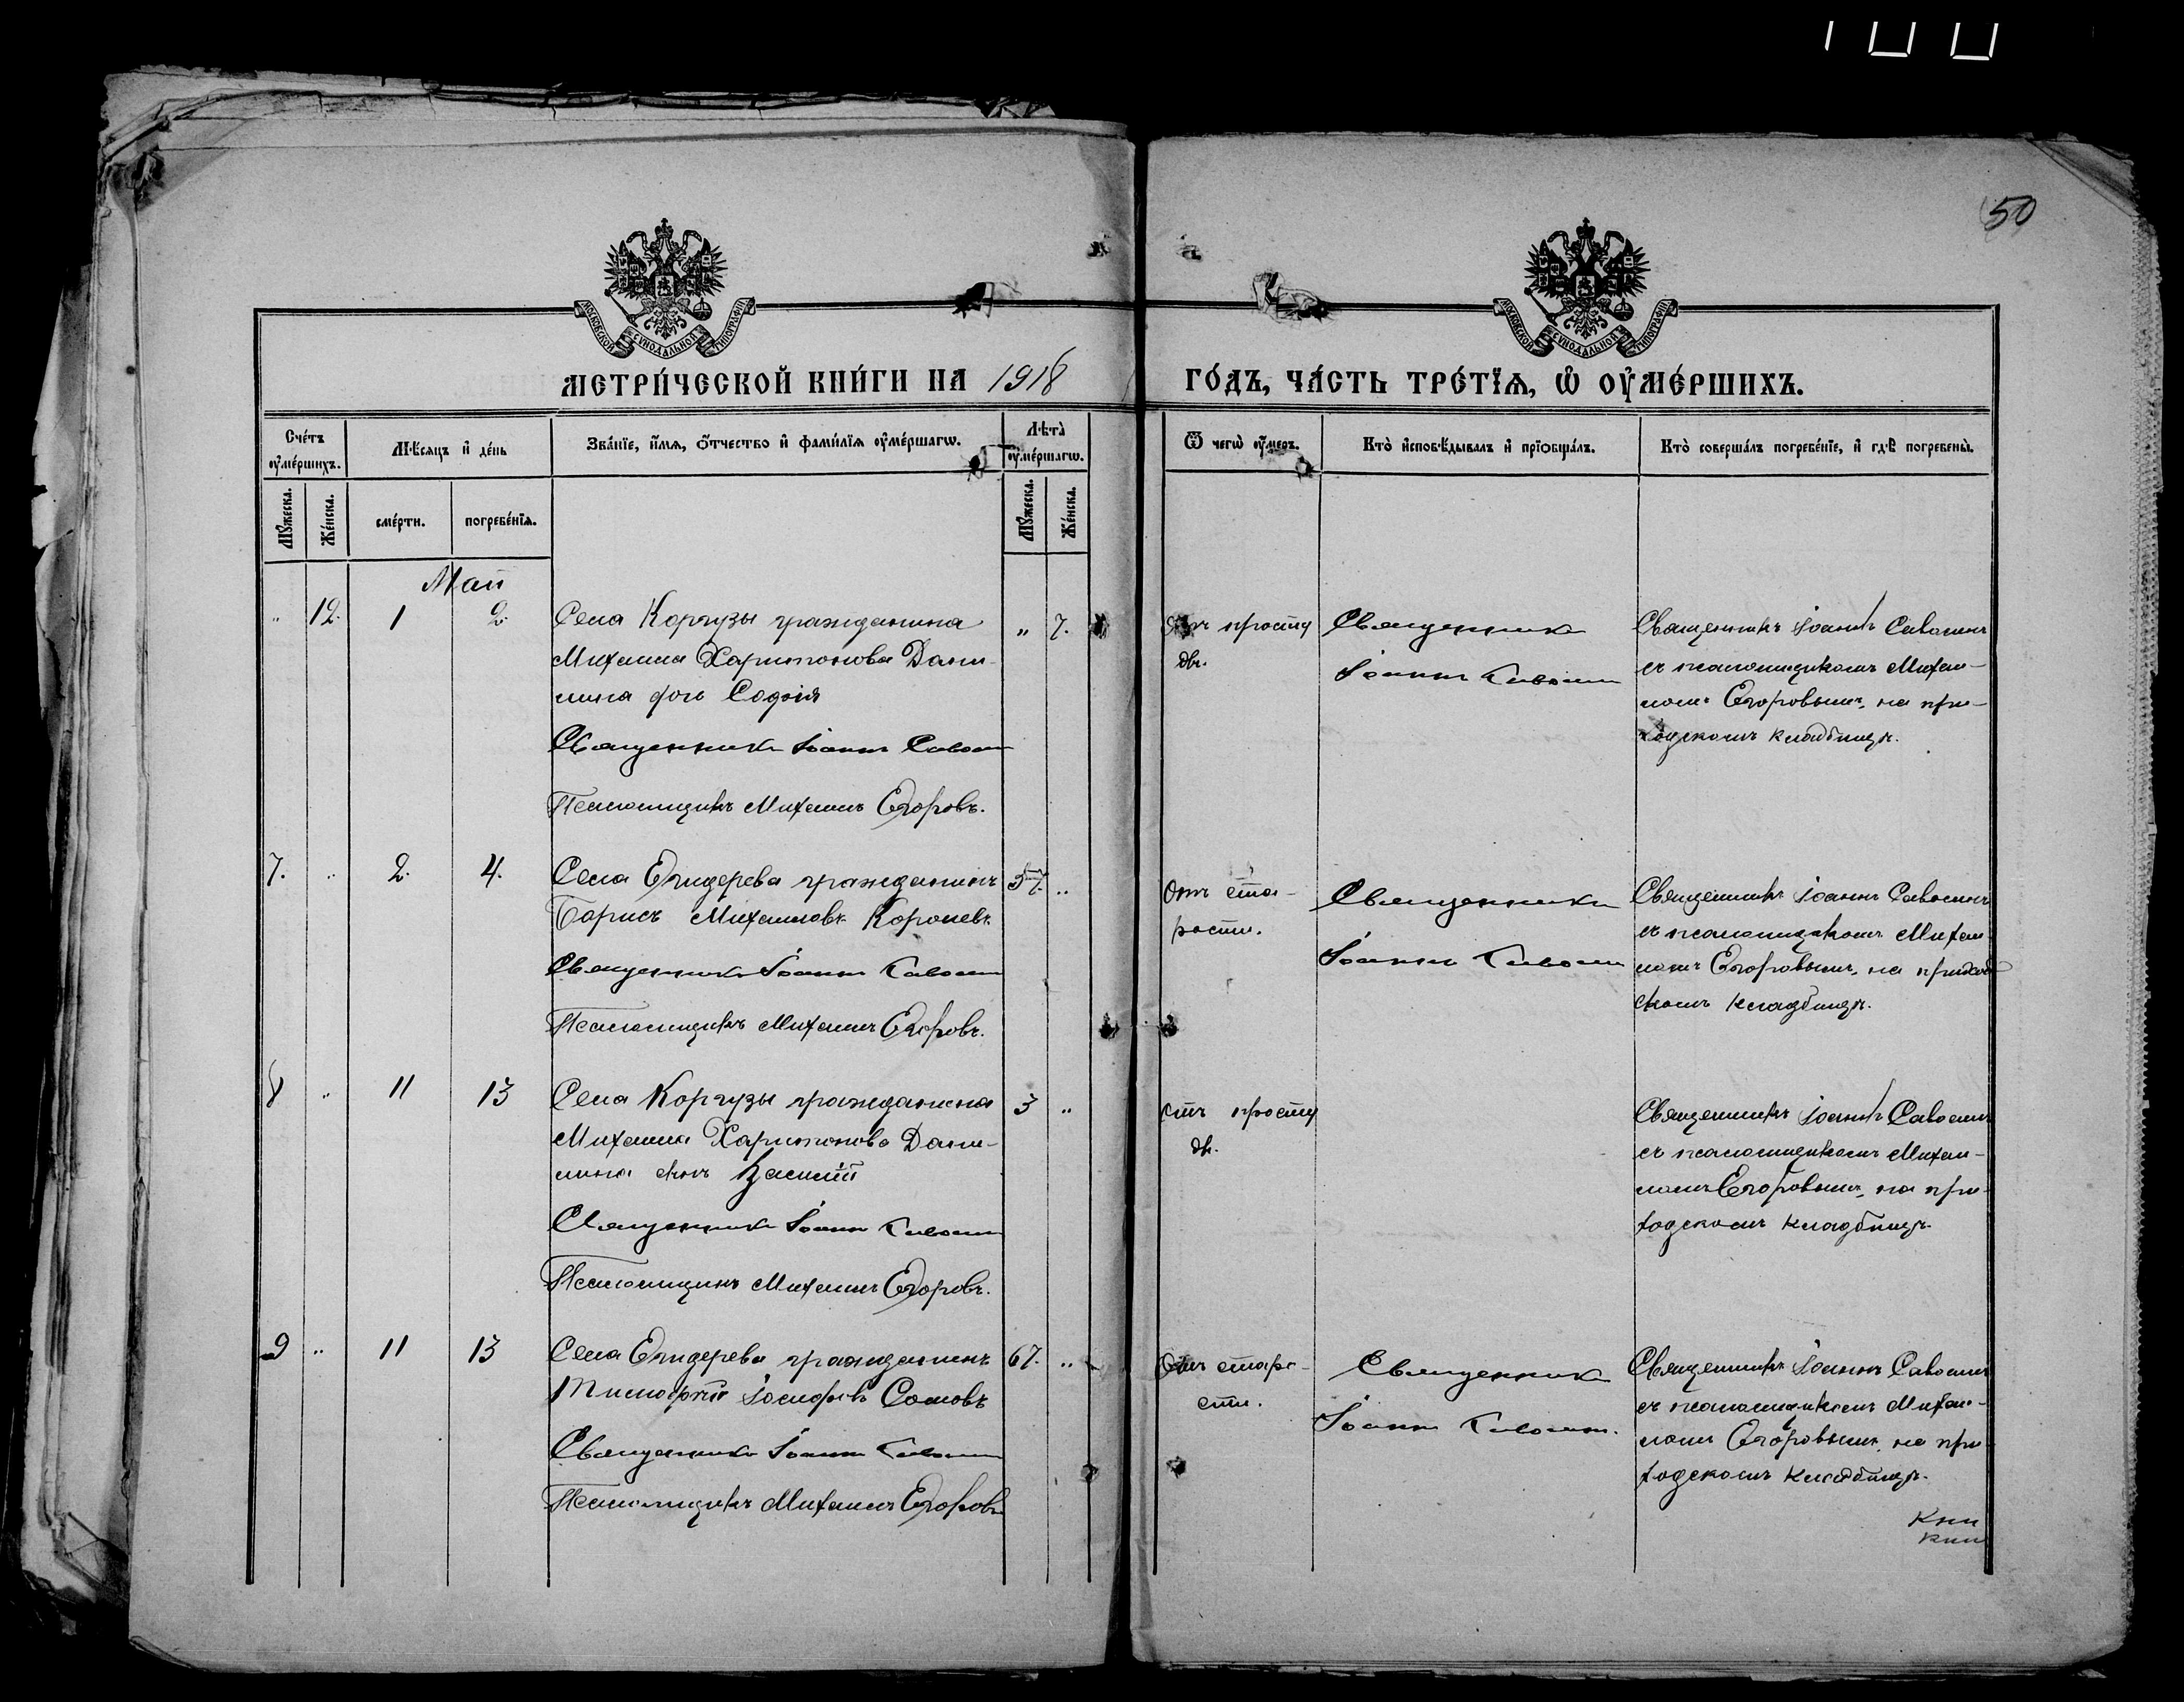 50
МОСКОВСКОЙ СѴНОДАЛЬНОЙ ТИПОГРАФІИ
МОСКОВСКОЙ СѴНОДАЛЬНОЙ ТИПОГРАФІИ
МЕТРИ́ЧЕСКОЙ КНИ́ГИ НА 1918 ГО́ДЪ, ЧА́СТЬ ТРЕ́ТЇѦ, Ѽ ОУ҆МЕ́РШИХЪ.
Сче́тъ оу҆ме́ршихъ.
Мѣ́сяцъ и҆ де́нь
Зва́нїе, и҆́мя, ѻ҆́тчество и҆ фами́лїя оу҆ме́ршагѡ.
Лѣта̀ оу҆ме́ршагѡ.
Ѿ чегѡ̀ оу҆́меръ.
Кто̀ и҆сповѣ́дывалъ и҆ прїѻбща́лъ.
Кто̀ соверша́лъ погребе́нїе, и҆ гдѣ̀ погребены̀.
Мꙋ́жеска.
Же́нска.
сме́рти.
погребе́нїя.
Мꙋ́жеска.
Же́нска.
Май
" 12. 1 2.
Села Коргузы гражданина
Михаила Харитонова Дани-
лина дочь Софія
Священникъ Іоаннъ Савосин
Псаломщикъ Михаилъ Егоровъ.
" 7.
Отъ просту
дѣ.
Священникъ
Іоаннъ Савосин
Священникъ Іоаннъ Савосинъ
съ псаломщикомъ Михаи-
ломъ Егоровымъ, на при-
ходскомъ кладбищѣ.
7. " 2. 4.
Села Ендерева гражданинъ
Борисъ Михаиловъ Королевъ
Священникъ Іоаннъ Савосин
Псаломщикъ Михаилъ Егоровъ.
"
Отъ ста-
рости.
Священникъ
Іоаннъ Савосин
Священникъ Іоаннъ Савосинъ
съ псаломщикомъ Михаи-
ломъ Егоровымъ, на приход-
скомъ кладбищѣ.
8 " 11 13
Села Коргузы гражданина
Михаила Харитонова Дани-
лина сынъ Василій
Священникъ Іоаннъ Савосин
Псаломщикъ Михаилъ Егоровъ.
3 "
отъ просту
дѣ.
Священникъ Іоаннъ Савосинъ
съ псаломщикомъ Михаи-
ломъ Егоровымъ, на при-
ходскомъ кладбищѣ.
9 " 11 13
Села Ендерева гражданинъ
Тимофей Іосифовъ Сомовъ
Священникъ Іоаннъ Савосин
Псаломщикъ Михаилъ Егоровъ
67. "
Отъ старо-
сти.
Священникъ
Іоаннъ Савосин.
Священникъ Іоаннъ Савосинъ
съ псаломщикомъ Михаи-
ломъ Егоровымъ, на при-
ходскомъ кладбищѣ.